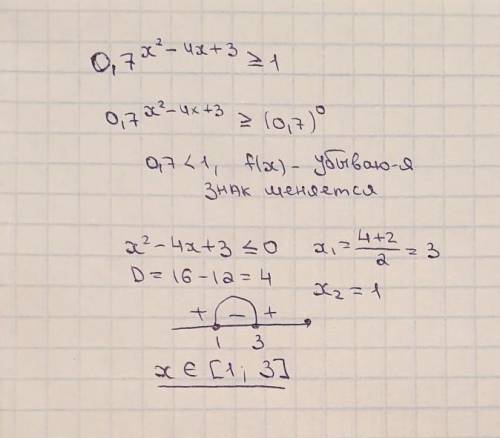 0,7^(x² - 4x + 3) ≥ 1
0,7^(x² - 4x + 3) ≥ (0,7)^0
0,7 < 1, f(x) - убываю-я
знак меняется
x² - 4x + 3 ≤ 0 x₁ = (4+2)/2 = 3
D = 16 - 12 = 4 x₂ = 1
+ - +
1 3
x ∈ [1; 3]